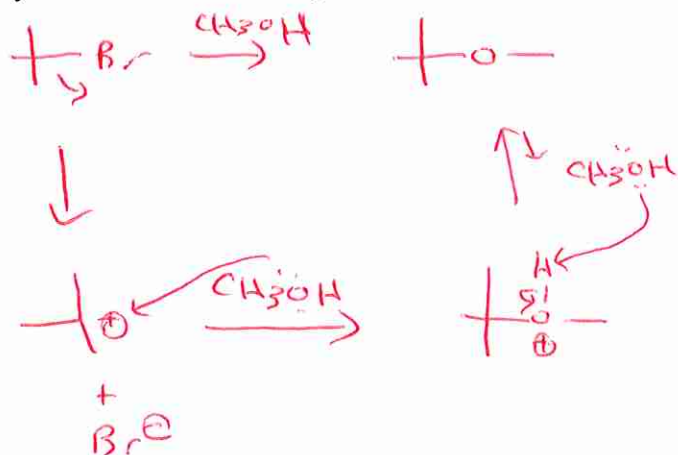 Br CH3OH O
CH3ÖH
⊕ CH3ÖH H
O
+ ⊕
Br⊖